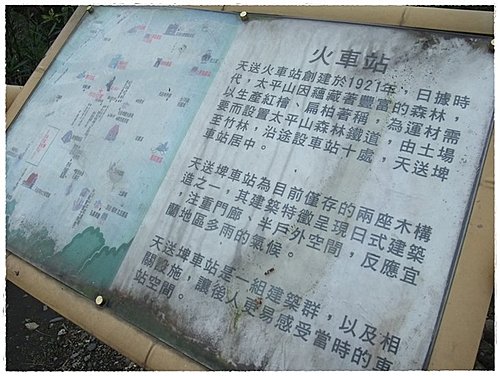 火車站
天送火車站創建於1921年，日據時
代，太平山因蘊藏著豐富的森林，
以生產紅檜、扁柏著稱，為運材需
要而設置太平山森林鐵道，由土場
至竹林，沿途設車站十處，天送埤
車站居中。
天送埤車站為目前僅存的兩座木構
造之一，其建築特徵呈現日式建築
，注重門廊、半戶外空間，反應宜
蘭地區多雨的氣候。
天送埤車站是一組建築群，以及相
關設施，讓後人更易感受當時的車
站空間。